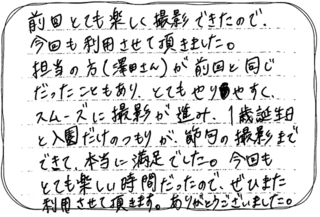 前回とても楽しく撮影できたので、
今回も利用させて頂きました。
担当の方(澤田さん)が前回と同じ
だったこともあり、とてもやりやすく、
スムーズに撮影が進み、1歳誕生日
と入園だけのつもりが、節句の撮影まで
できて、本当に満足でした。今回も
とても楽しい時間だったので、ぜひまた
利用させて頂きます。ありがとうございました。